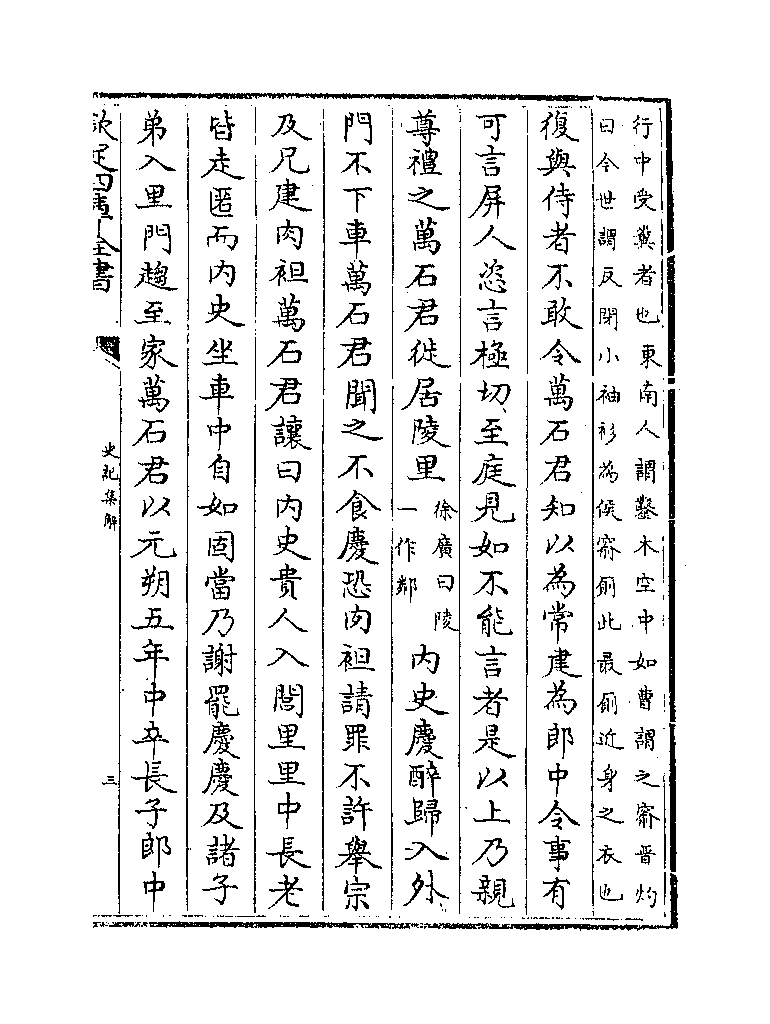 行中受糞者也東南人謂鑿木空中如曹謂之窬晉灼
曰今世謂反閉小袖衫為侯窬厠此最厠近身之衣也
復與侍者不敢令萬石君知以為常建為郎中令事有
可言屏人恣言極切至庭見如不能言者是以上乃親
尊禮之萬石君徙居陵里
徐廣曰陵
一作鄰
内史慶醉歸入外
門不下車萬石君聞之不食慶恐肉袒請罪不許舉宗
及兄建肉袒萬石君讓曰内史貴人入閭里里中長老
皆走匿而内史坐車中自如固當乃謝罷慶慶及諸子
弟入里門趨至家萬石君以元朔五年中卒長子郎中
欽定四庫全書
史記集解
三